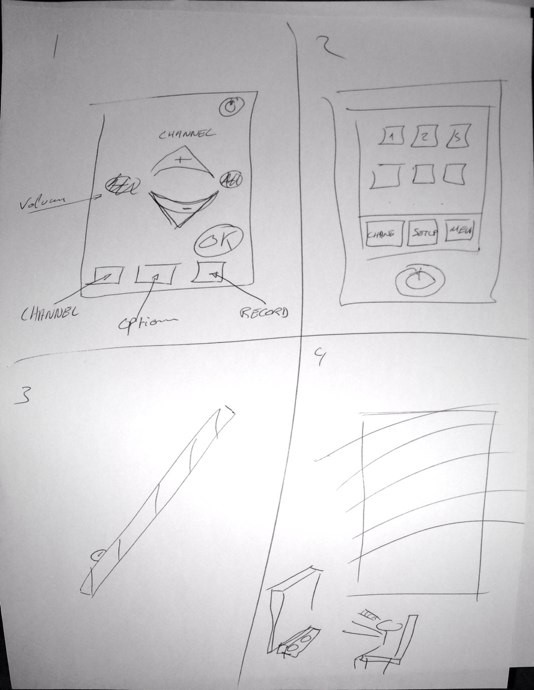 1
CHANNEL
+
-
OK
Volum
CHANNEL
option
RECORD
2
1 2 3
CHANE SETUP MENU
3
4